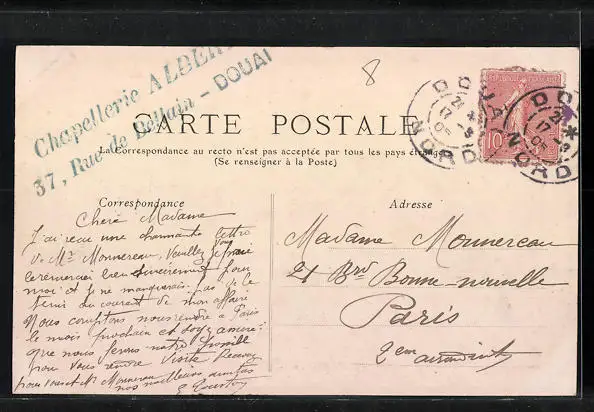 Chapellerie ALBER
37, Rue de Bellain - DOUAI
8
CARTE POSTALE
La Correspondance au recto n'est pas acceptée par tous les pays étrangers
(Se renseigner à la Poste)
DOUAI
17
05
NORD
DOUAI
17
05
NORD
10
Correspondance
Adresse
Chere Madame
J'ai recu une charmante lettre
de Mr Monnereau, Veuillez je vous prie
le remercier bien sincèrement pour
moi et je ne manquerais pas de le
tenir au courant de mon affaire
Nous comptons nous rendre à Paris
le mois prochain et soyez assurée
que nous ferons notre possible
pour vous rendre visite Recevez
pour vous et Mr Monnereau
nos meilleures amitiés
Madame Monnereau
21 Brd Bonne-nouvelle
Paris
2em arrondist